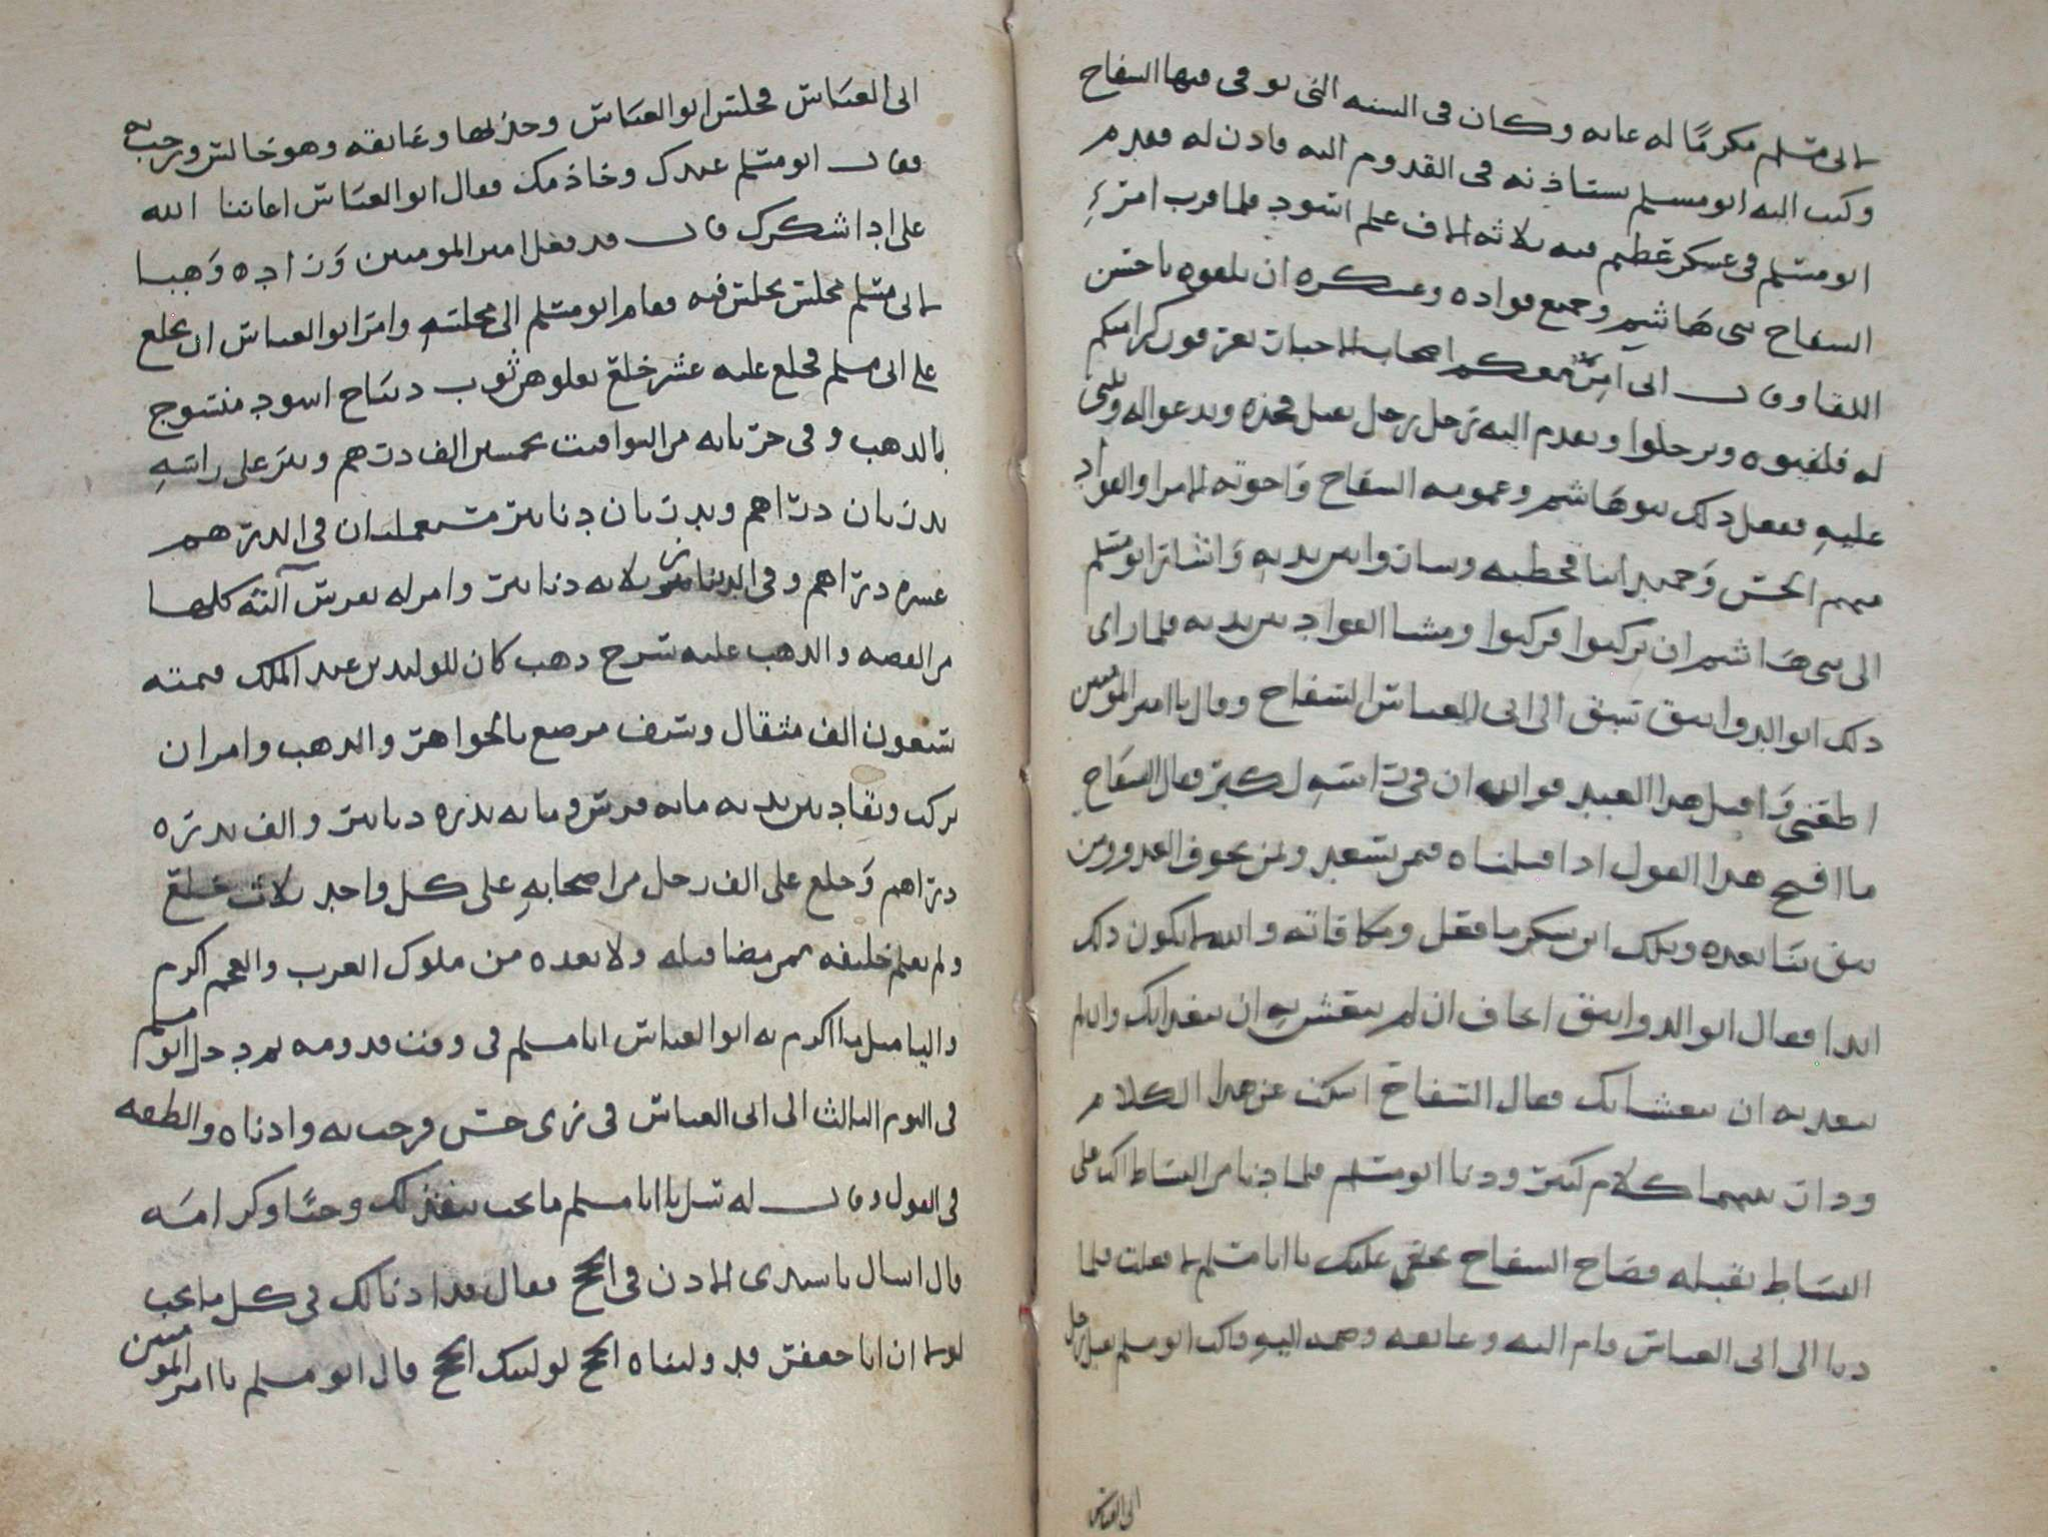 لابى مسلم مكرما له غايه وكان فى السنه التى توفى فيها السفاح
وكتب اليه ابو مسلم يستاذنه فى القدوم اليه فاذن له فقدم
ابو مسلم فى عسكر عظيم فيه ثلاثه الاف علم اسود فلما قرب امر
السفاح بنى هاشم وجميع قواده وعسكره ان يلقوه باحسن
اللقا وقال انى آمر اصحاب الاحبات تعرفون كرامتكم
له فلقيوه وترجلوا وتقدم اليه رجل رجل يقبل فخذه ويدعوا له ويثنى
عليه ففعل ذلك بنو هاشم وعمومه السفاح واخوته الامرا والقواد
منهم الحسن وحميد ابنا قحطبه وساروا بين يديه واشار ابو مسلم
الى بنى هاشم ان يركبوا فركبوا ومشا القواد بين يديه فلما راى
ذلك ابو الدوانيق سبق الى ابى العباس السفاح وقال يا امير المومنين
اطعنى واقتل هذا العبد فوالله ان فى راسه لكبر فقال السفاح
ما اقبح هذا القول اذا قتلناه فمن نستعبد ولمن نخوف الغدر ومن
يثق بنا بعده ويلك ابن يشكر ما فعل ومكافاته والله لا يكون ذلك
ابدا فقال ابو الدوانيق اخاف ان لم تتعش به ان يتغدا بك وان لم
تتغد به ان يتعشا بك فقال السفاح اسكت عن هذا الكلام
ودار بينهما كلام كثير ودنا ابو مسلم فلما دنا من البساط اكب على
البساط يقبله فصاح السفاح بحقى عليك يا ابا مسلم لا فعلت فلما
دنا الى ابى العباس قام اليه وعانقه وضمه اليه فاكب ابو مسلم يقبل رجل
ابى العباس
ابى العباس فجلس ابو العباس وعانقه وهو جالس ورحب به
فقال ابو مسلم عبدك وخادمك فقال ابو العباس اعاننا الله
على ادا شكرك قال قد فعل امير المومنين وزاده وهبا
لابى مسلم مجلس يجلس فيه فقام ابو مسلم الى مجلسه وامر ابو العباس ان يخلع
على ابى مسلم فخلع عليه عشر خلع يعلوهن ثوب ديباج اسود منسوج
بالذهب وفى جربانه من اليواقيت بخمسين الف درهم ونثر على راسه
بدرتان دراهم وبدرتان دنانير فى الدرهم
عشره دراهم وفى الدنانير ثلاثه دنانير وامر له بفرس آلته كلها
من الفضه والذهب عليه سرج ذهب كان للوليد بن عبد الملك قيمته
سبعون الف مثقال وسيف مرصع بالجواهر والذهب وامر ان
يركب وتقاد بين يديه مايه فرس ومايه بدره دنانير والف بدره
دراهم وخلع على الف رجل من اصحابه على كل واحد ثلاث خلع
ولم يعلم خليفه ممن مضا قبله ولا بعده من ملوك العرب والعجم اكرم
بما اكرم به ابو العباس ابا مسلم فى وقت قدومه ثم دخل ابو مسلم
فى اليوم الثالث الى ابى العباس فى زى حسن فرحب به وادناه والطفه
فى القول وقال له سل يا ابا مسلم ما تحب وحبا وكرامه
قال اسال يا سيدى الاذن فى الحج فقال قد اذنا لك فى كل ما تحب
لولا ان ابا جعفر قد وليناه الحج لوليتك الحج قال ابو مسلم يا امير المومنين